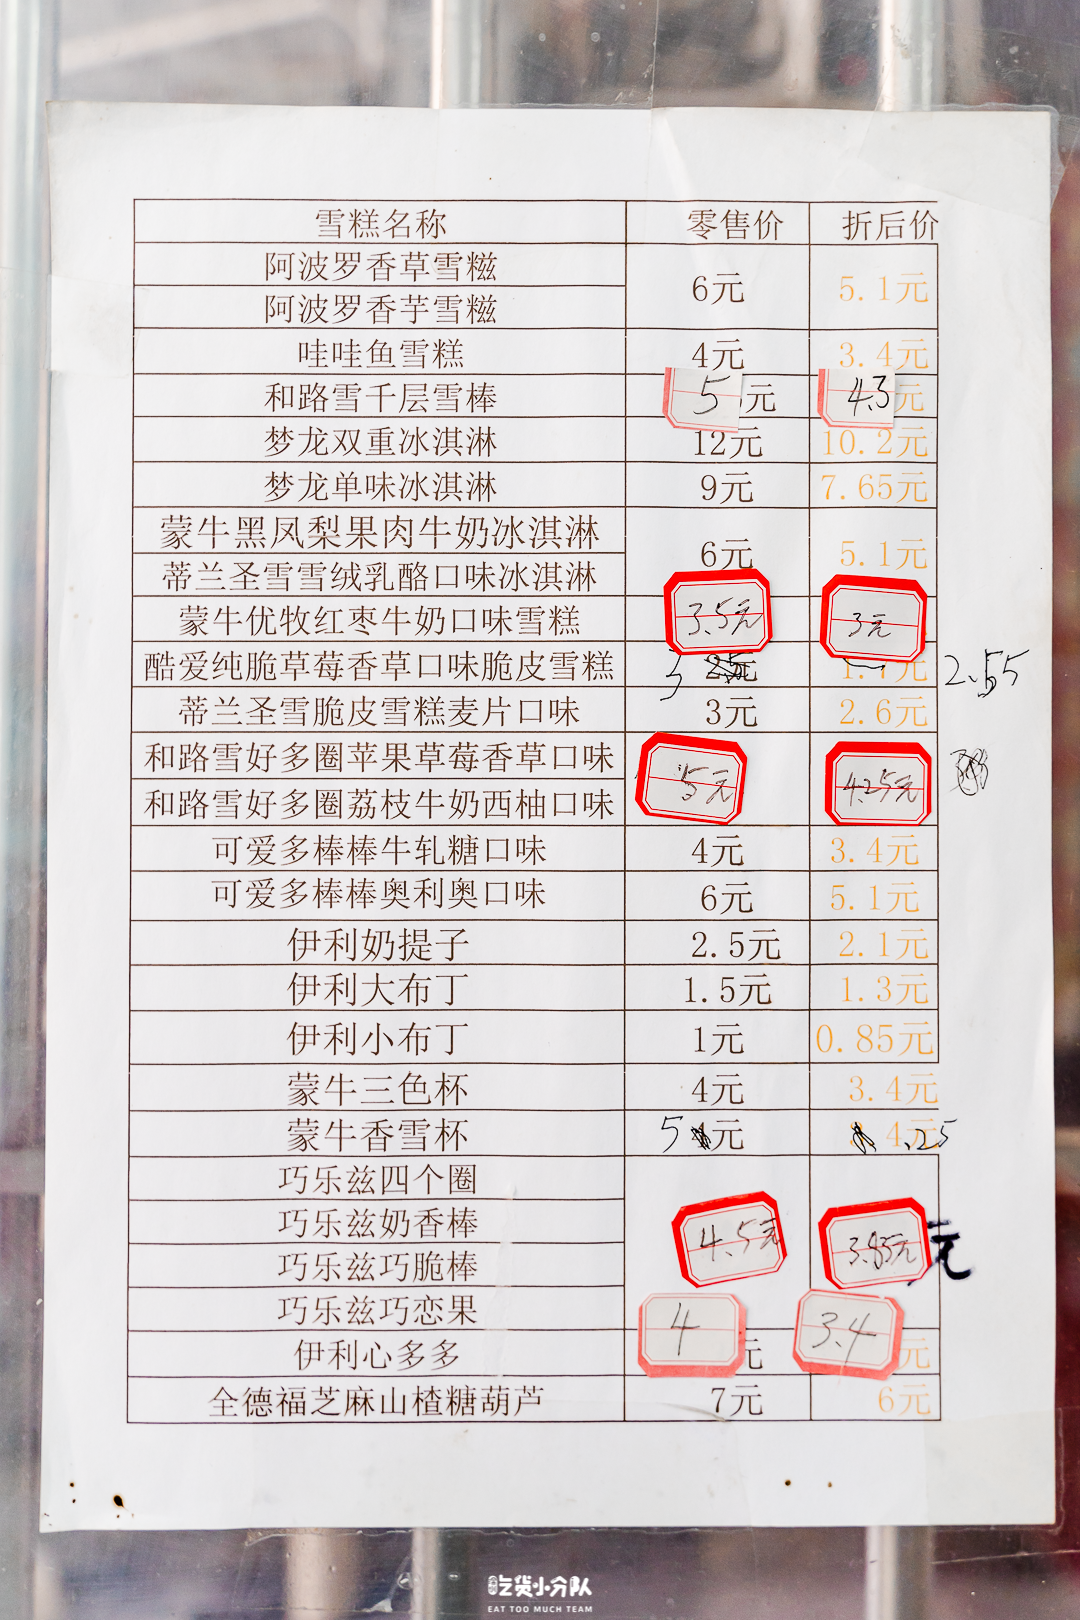 雪糕名称 零售价 折后价
阿波罗香草雪糍
6元 5.1元
阿波罗香芋雪糍
哇哇鱼雪糕 4元 3.4元
和路雪千层雪棒 5元 4.3元
梦龙双重冰淇淋 12元 10.2元
梦龙单味冰淇淋 9元 7.65元
蒙牛黑凤梨果肉牛奶冰淇淋
6元 5.1元
蒂兰圣雪雪绒乳酪口味冰淇淋
蒙牛优牧红枣牛奶口味雪糕 3.5元 3元
酷爱纯脆草莓香草口味脆皮雪糕 3 元 元 2.55
蒂兰圣雪脆皮雪糕麦片口味 3元 2.6元
和路雪好多圈苹果草莓香草口味
5元 4.25元
和路雪好多圈荔枝牛奶西柚口味
可爱多棒棒牛轧糖口味 4元 3.4元
可爱多棒棒奥利奥口味 6元 5.1元
伊利奶提子 2.5元 2.1元
伊利大布丁 1.5元 1.3元
伊利小布丁 1元 0.85元
蒙牛三色杯 4元 3.4元
蒙牛香雪杯 5 元 4元 .25
巧乐兹四个圈
巧乐兹奶香棒
4.5元 3.85元 元
巧乐兹巧脆棒
巧乐兹巧恋果
伊利心多多 4元 3.4元
全德福芝麻山楂糖葫芦 7元 6元
吃货小分队
EAT TOO MUCH TEAM